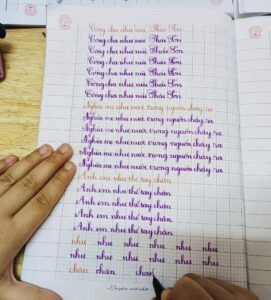 Công cha như núi Thái Sơn
Công cha như núi Thái Sơn
Công cha như núi Thái Sơn
Công cha như núi Thái Sơn
Công cha như núi Thái Sơn
Công cha như núi Thái Sơn
Công cha như núi Thái Sơn
Nghĩa mẹ như nước trong nguồn chảy ra
Nghĩa mẹ như nước trong nguồn chảy ra
Nghĩa mẹ như nước trong nguồn chảy ra
Nghĩa mẹ như nước trong nguồn chảy ra
Nghĩa mẹ như nước trong nguồn chảy ra
Nghĩa mẹ như nước trong nguồn chảy ra
Anh em như thể tay chân
Anh em như thể tay chân
Anh em như thể tay chân
Anh em như thể tay chân
Anh em như thể tay chân
như như như như như như
như như như như như như
chân chân chân